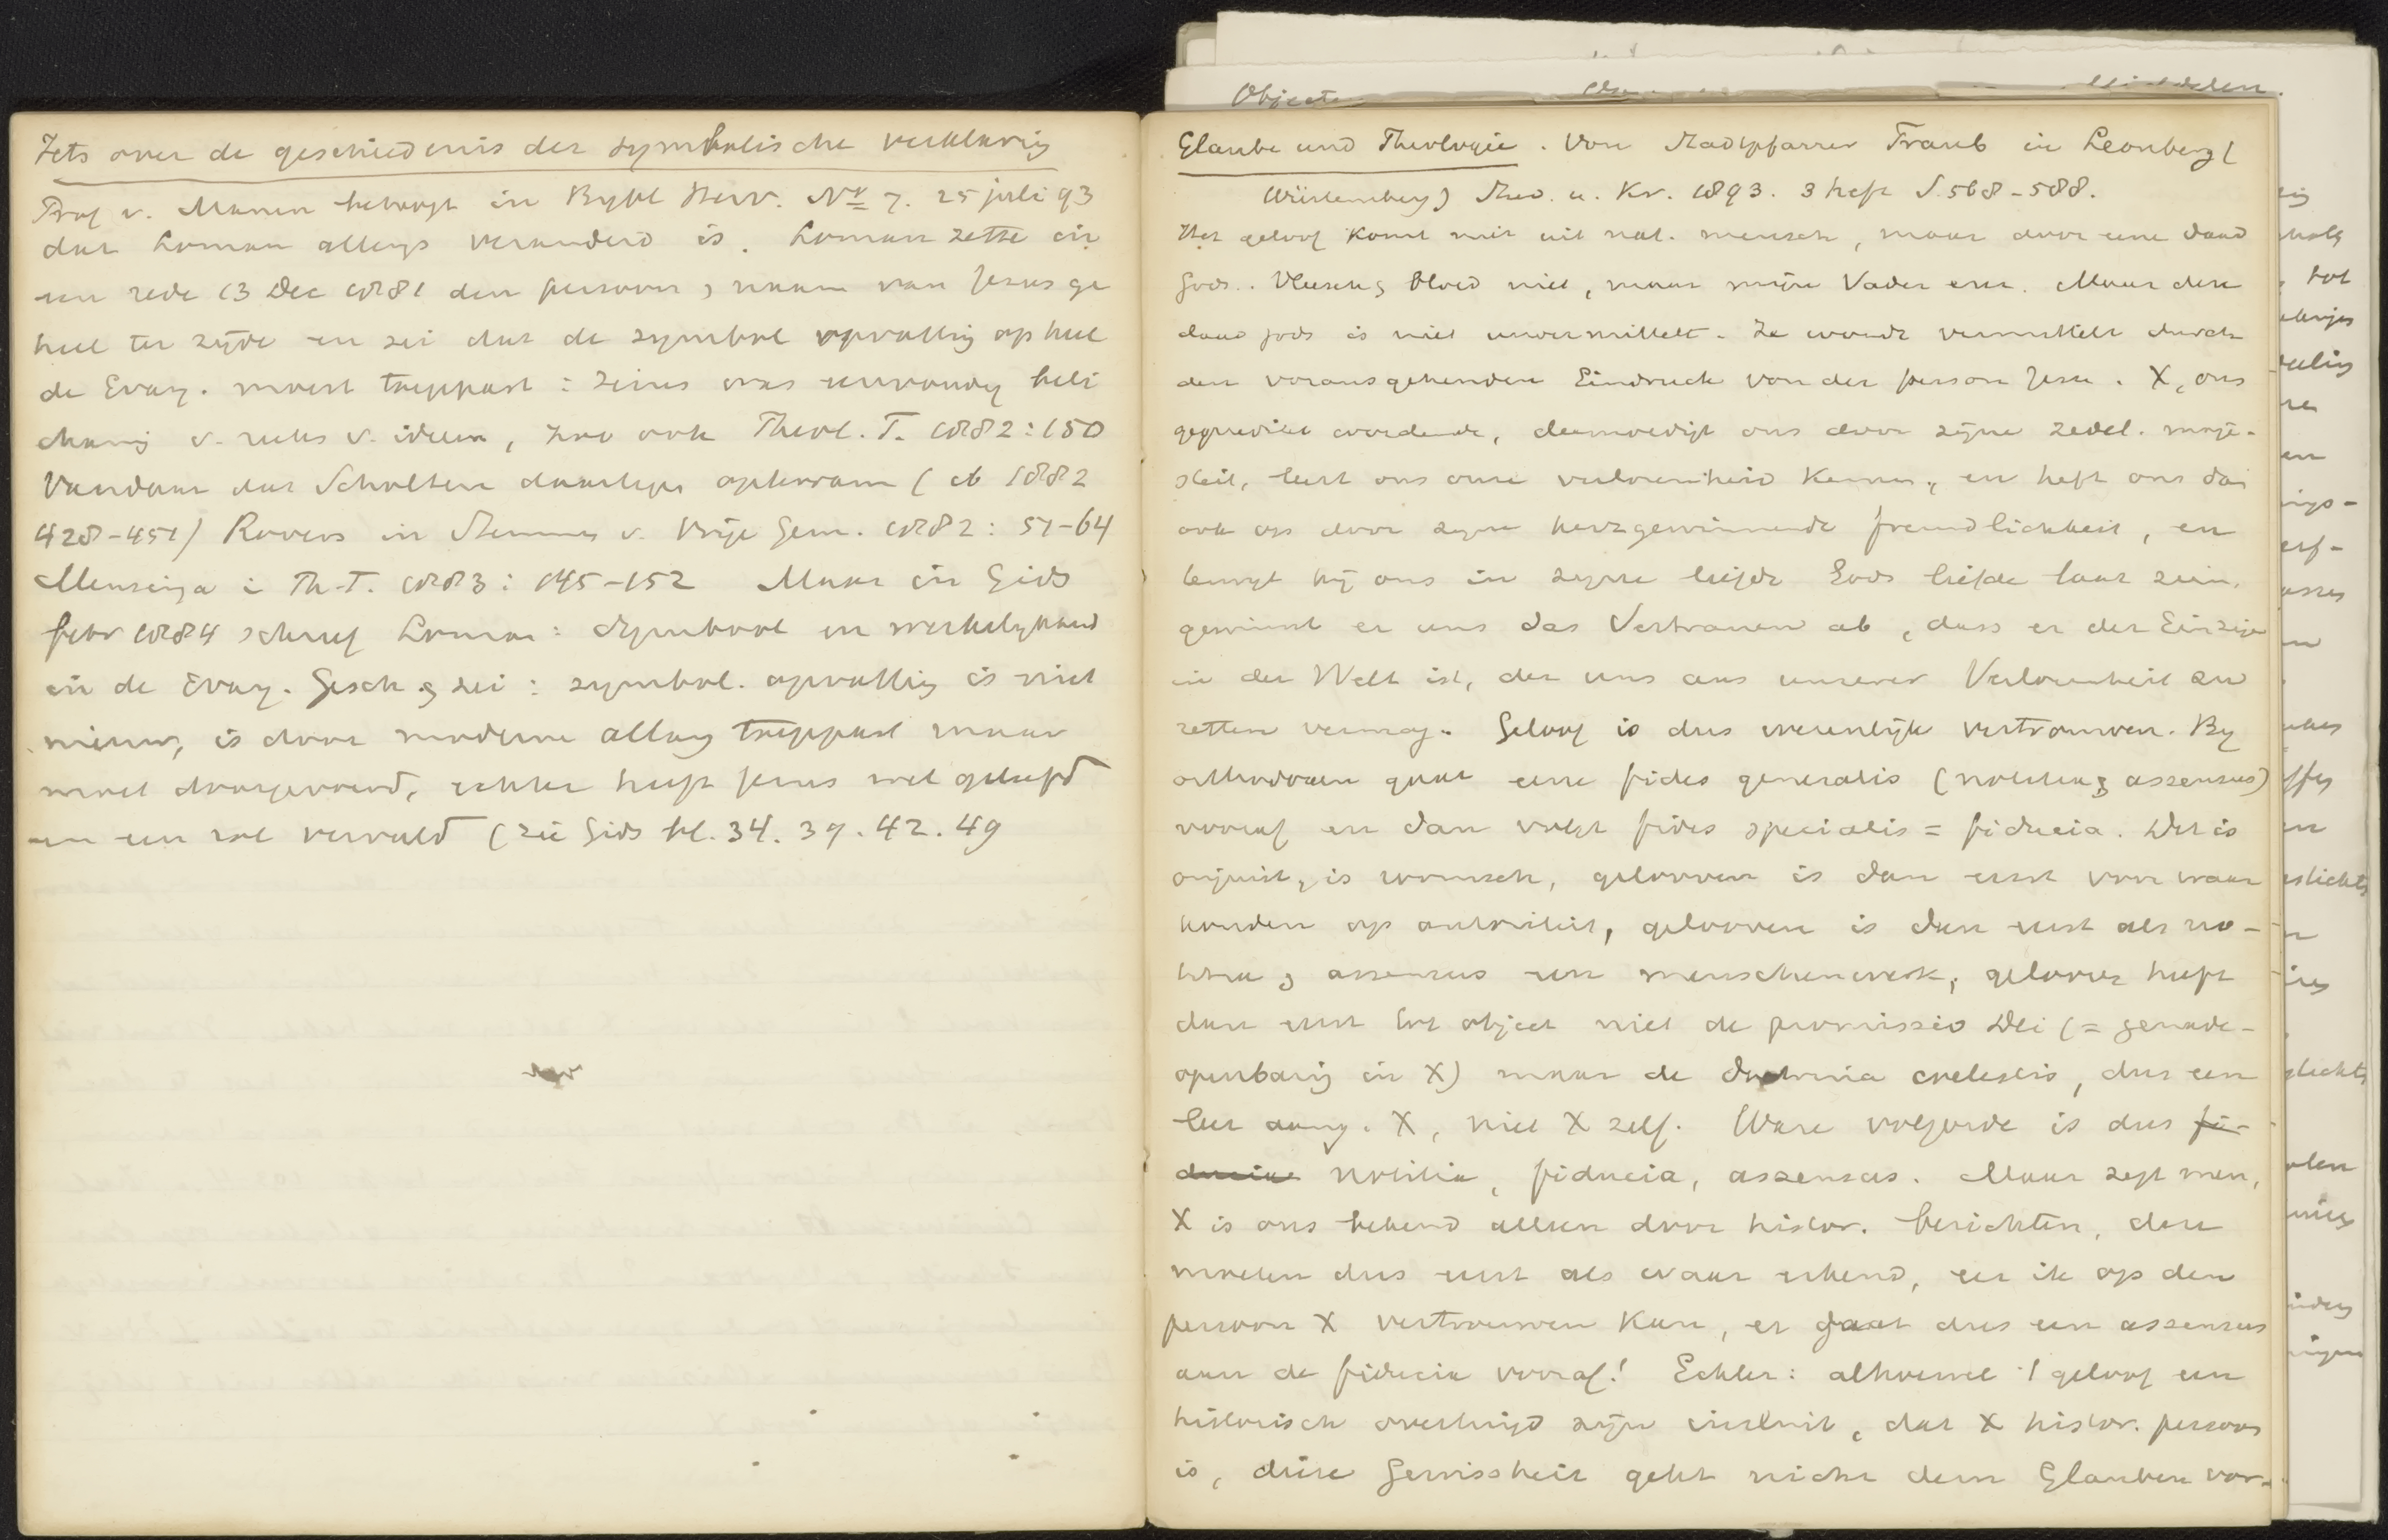 Iets over de geschiedenis der symbolische verklaring
Prof v. Manen betoogt in Bybl Herv. No 7. 25 juli 93
dat Loman allengs veranderd is. Loman zette in
een rede 13 Dec 1881 den persoon & naam van Jezus ge
heel ter zyde en zei dat de symbol opvatting op heel
de Evang. moest toegepast: Jezus was eenvoudig beli
chaming v. reeks v. ideeen, zoo ook Theol. T. 1882: 150
Vandaar dat Scholten daartegen opkwam (ib 1882
428-451) Rovers in Stemmen v. Vrije Gem. 1882: 51-64
Mensinga i Th. T. 1883: 145-152 Maar in Gids
febr 1884 schreef Loman: Symbool en werkelykheid
in de Evang. Gesch. & zei: symbol. opvatting is niet
nieuw, is door moderne allang toegepast maar
moet doorgevoerd, echter heeft Jezus wel geleefd
en een rol vervuld (zie Gids bl. 34. 39. 42. 49
Object
Glaube und Theologie. Von Stadtpfarrer Traub in Leonberg (
Würtemberg) Stud. u. Kr. 1893. 3 heft S. 568-588.
Het geloof komt niet uit nat. mensch, maar door eene daad
Gods. Vleesch & bloed niet, maar mijn Vader enz. Maar deze
daad Gods is niet unvermittelt. Ze wordt vermittelt durch
den vorausgehenden Eindruck von der person Jesu. X, ons
gepredikt wordende, deemoedigt ons door zijne zedel. maje-
steit, leert ons onze verlorenheid kennen, en heft ons dan
ook op door zyne herzgewinnende freundlichkeit, en
brengt hij ons in zyne liefde Gods liefde laat zien,
gewinnt er uns das Vertrauen ab, dass er der Einzige
in der Welt ist, der uns aus unserer Verlorenheit zu
retten vermag. Geloof is dus wezenlijk vertrouwen. By
orthodoxen gaat eene fides generalis (notitia & assensus)
vooraf en dan volgt fides specialis = fiducia. Dit is
onjuist, is roomsch, gelooven is dan eerst voor waar
houden op autoriteit, gelooven is dan eerst als no-
titia & assensus een menschenwerk, geloove heeft
dan eerst tot object niet de promissio Dei (= genade-
openbaring in X) maar de doctrina coelestis, dus een
leer aang. X, niet X zelf. Ware volgorde is dus fi-
ducia notitia, fiducia, assensus. Maar zegt men,
X is ons bekend alleen door histor. berichten, deze
moeten dus eerst als waar erkend, eer ik op den
persoon X vertrouwen kan, er gaat dus een assensus
aan de fiducia vooraf! Echter: alhoewel 't geloof een
historisch overtuigd zijn insluit, dat X histor. persoon
is, diese Gewissheit geht nicht dem Glauben vor-